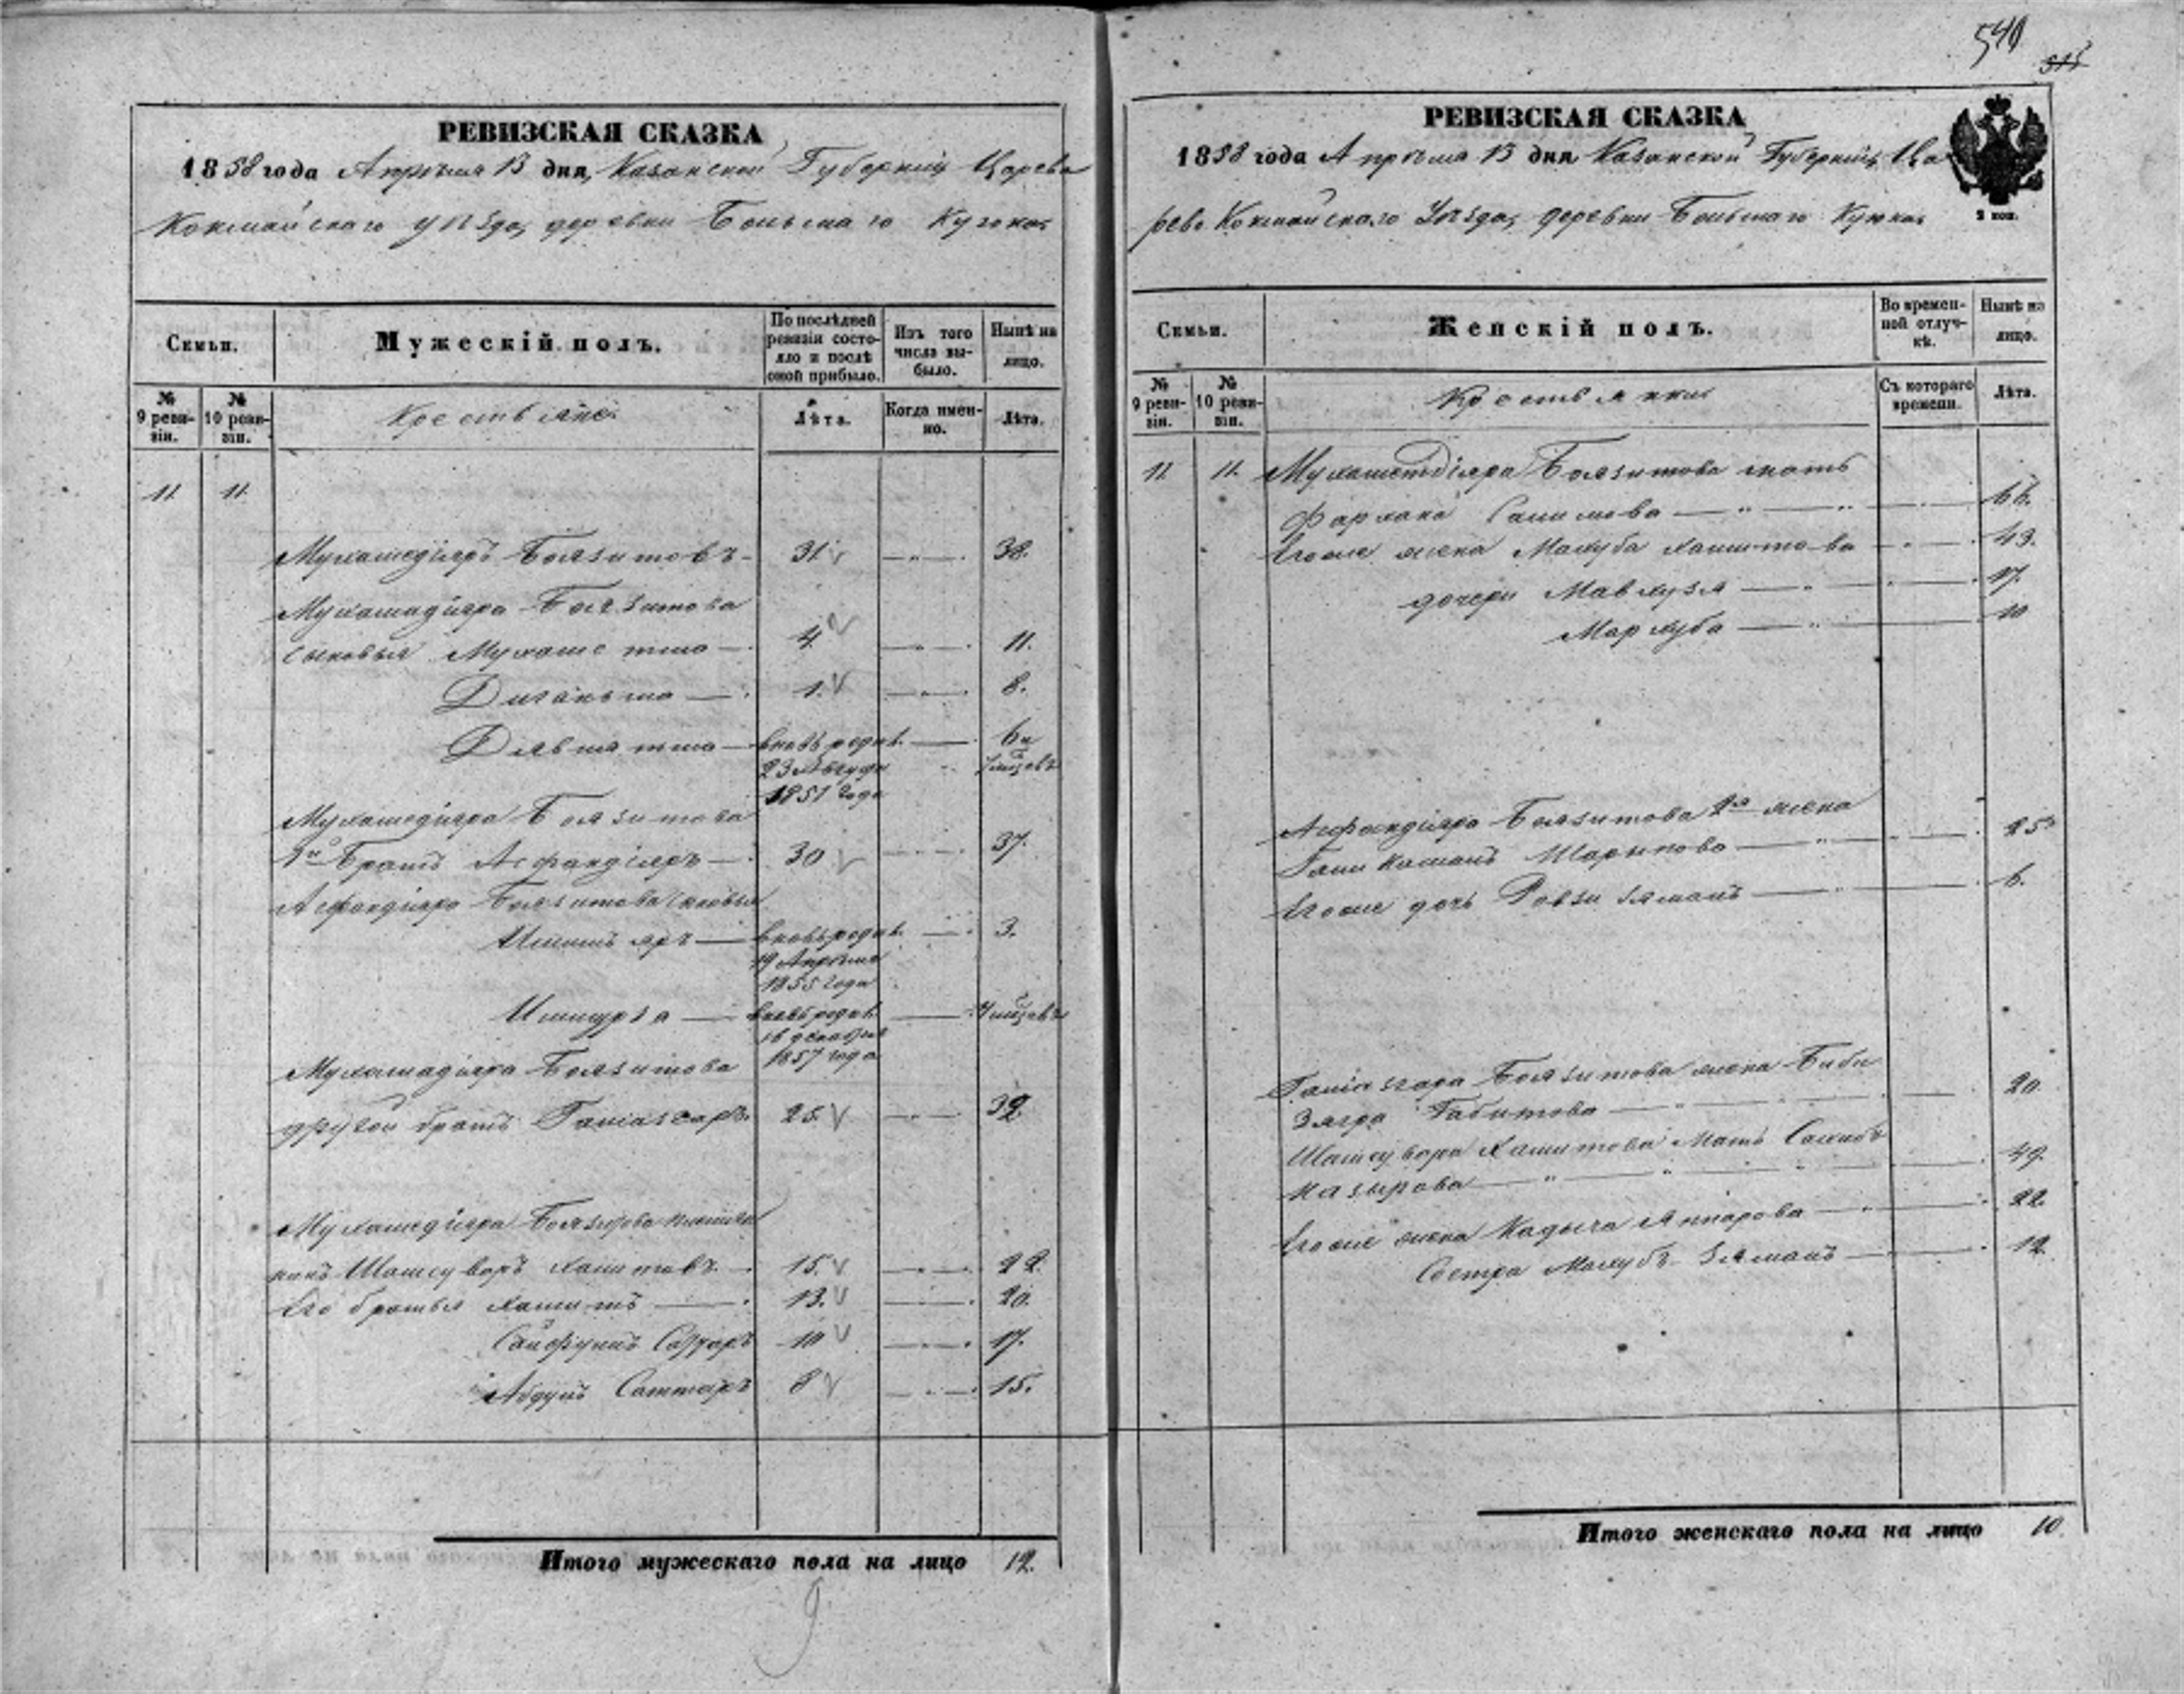 540
315
РЕВИЗСКАЯ СКАЗКА
1858 года Апрѣля 13 дня, Казанской Губерніи Царево
Кокшайскаго уѣзда, деревни Большаго Кугока
Семьи.
Мужескій полъ.
По послѣдней ревизіи состояло и послѣ оной прибыло.
Изъ того числа выбыло.
Нынѣ на лицо.
№ 9 ревизіи.
№ 10 ревизіи.
Крестьяне.
Лѣта.
Когда именно.
Лѣта.
11. 11.
Мухамедіяръ Боязитовъ 31 38.
Мухамадіяра Боязитова
сыновья Мухаметша 4. 11.
Диганьша 1. 8.
Давлятша вновь рожд. 6 и
23 Августа 7 мѣсяцевъ
1851 года
Мухамедіяра Боязитова
1й Братъ Асфандіяръ 30 37.
Асфандіяра Боязитова сыновья
Ишмъяръ вновь рожд. 3.
19 Апрѣля
1855 года
Ишмурза вновь рожд. 4 мѣсяцевъ
16 декабря
1857 года
Мухамадіяра Боязитова
другой братъ Ганіазгаръ 25. 32
Мухамедіяра Боязитова племян
никъ Шагисуваръ Хамитовъ 15. 22.
Его братья Хашимъ 13. 20.
Сайфулъ Саттаръ 10 17.
Абдулъ Саттаръ 8 15.
Итого мужескаго пола на лицо 12.
9
РЕВИЗСКАЯ СКАЗКА
1858 года Апрѣля 13 дня Казанской Губерніи Ца
рево Кокшайскаго Уѣзда, деревни Большаго Кугока
2 коп.
Семьи.
Женскій полъ.
Во временной отлучкѣ.
Нынѣ на лицо.
№ 9 ревизіи.
№ 10 ревизіи.
Крестьянки
Съ котораго времени.
Лѣта.
11. 11. Мухаметдіяра Боязитова мать
Фархана Салимова 66.
Егоже жена Махуба Хамитова 43.
дочери Мавлузя 17.
Мархуба 10
Асфандіяра Боязитова 2я жена
Ганикамалъ Шарыпова 25
Егоже дочь Равзи Зяманъ 6.
Ганіазгара Боязитова жена Биби
Зягра Габитова 20.
Шагисувара Хамитова Мать Сахибъ
Назырова 49.
Егоже жена Кадыча Аппарова 22.
Сестра Махубъ Зяманъ 12.
Итого женскаго пола на лицо 10.